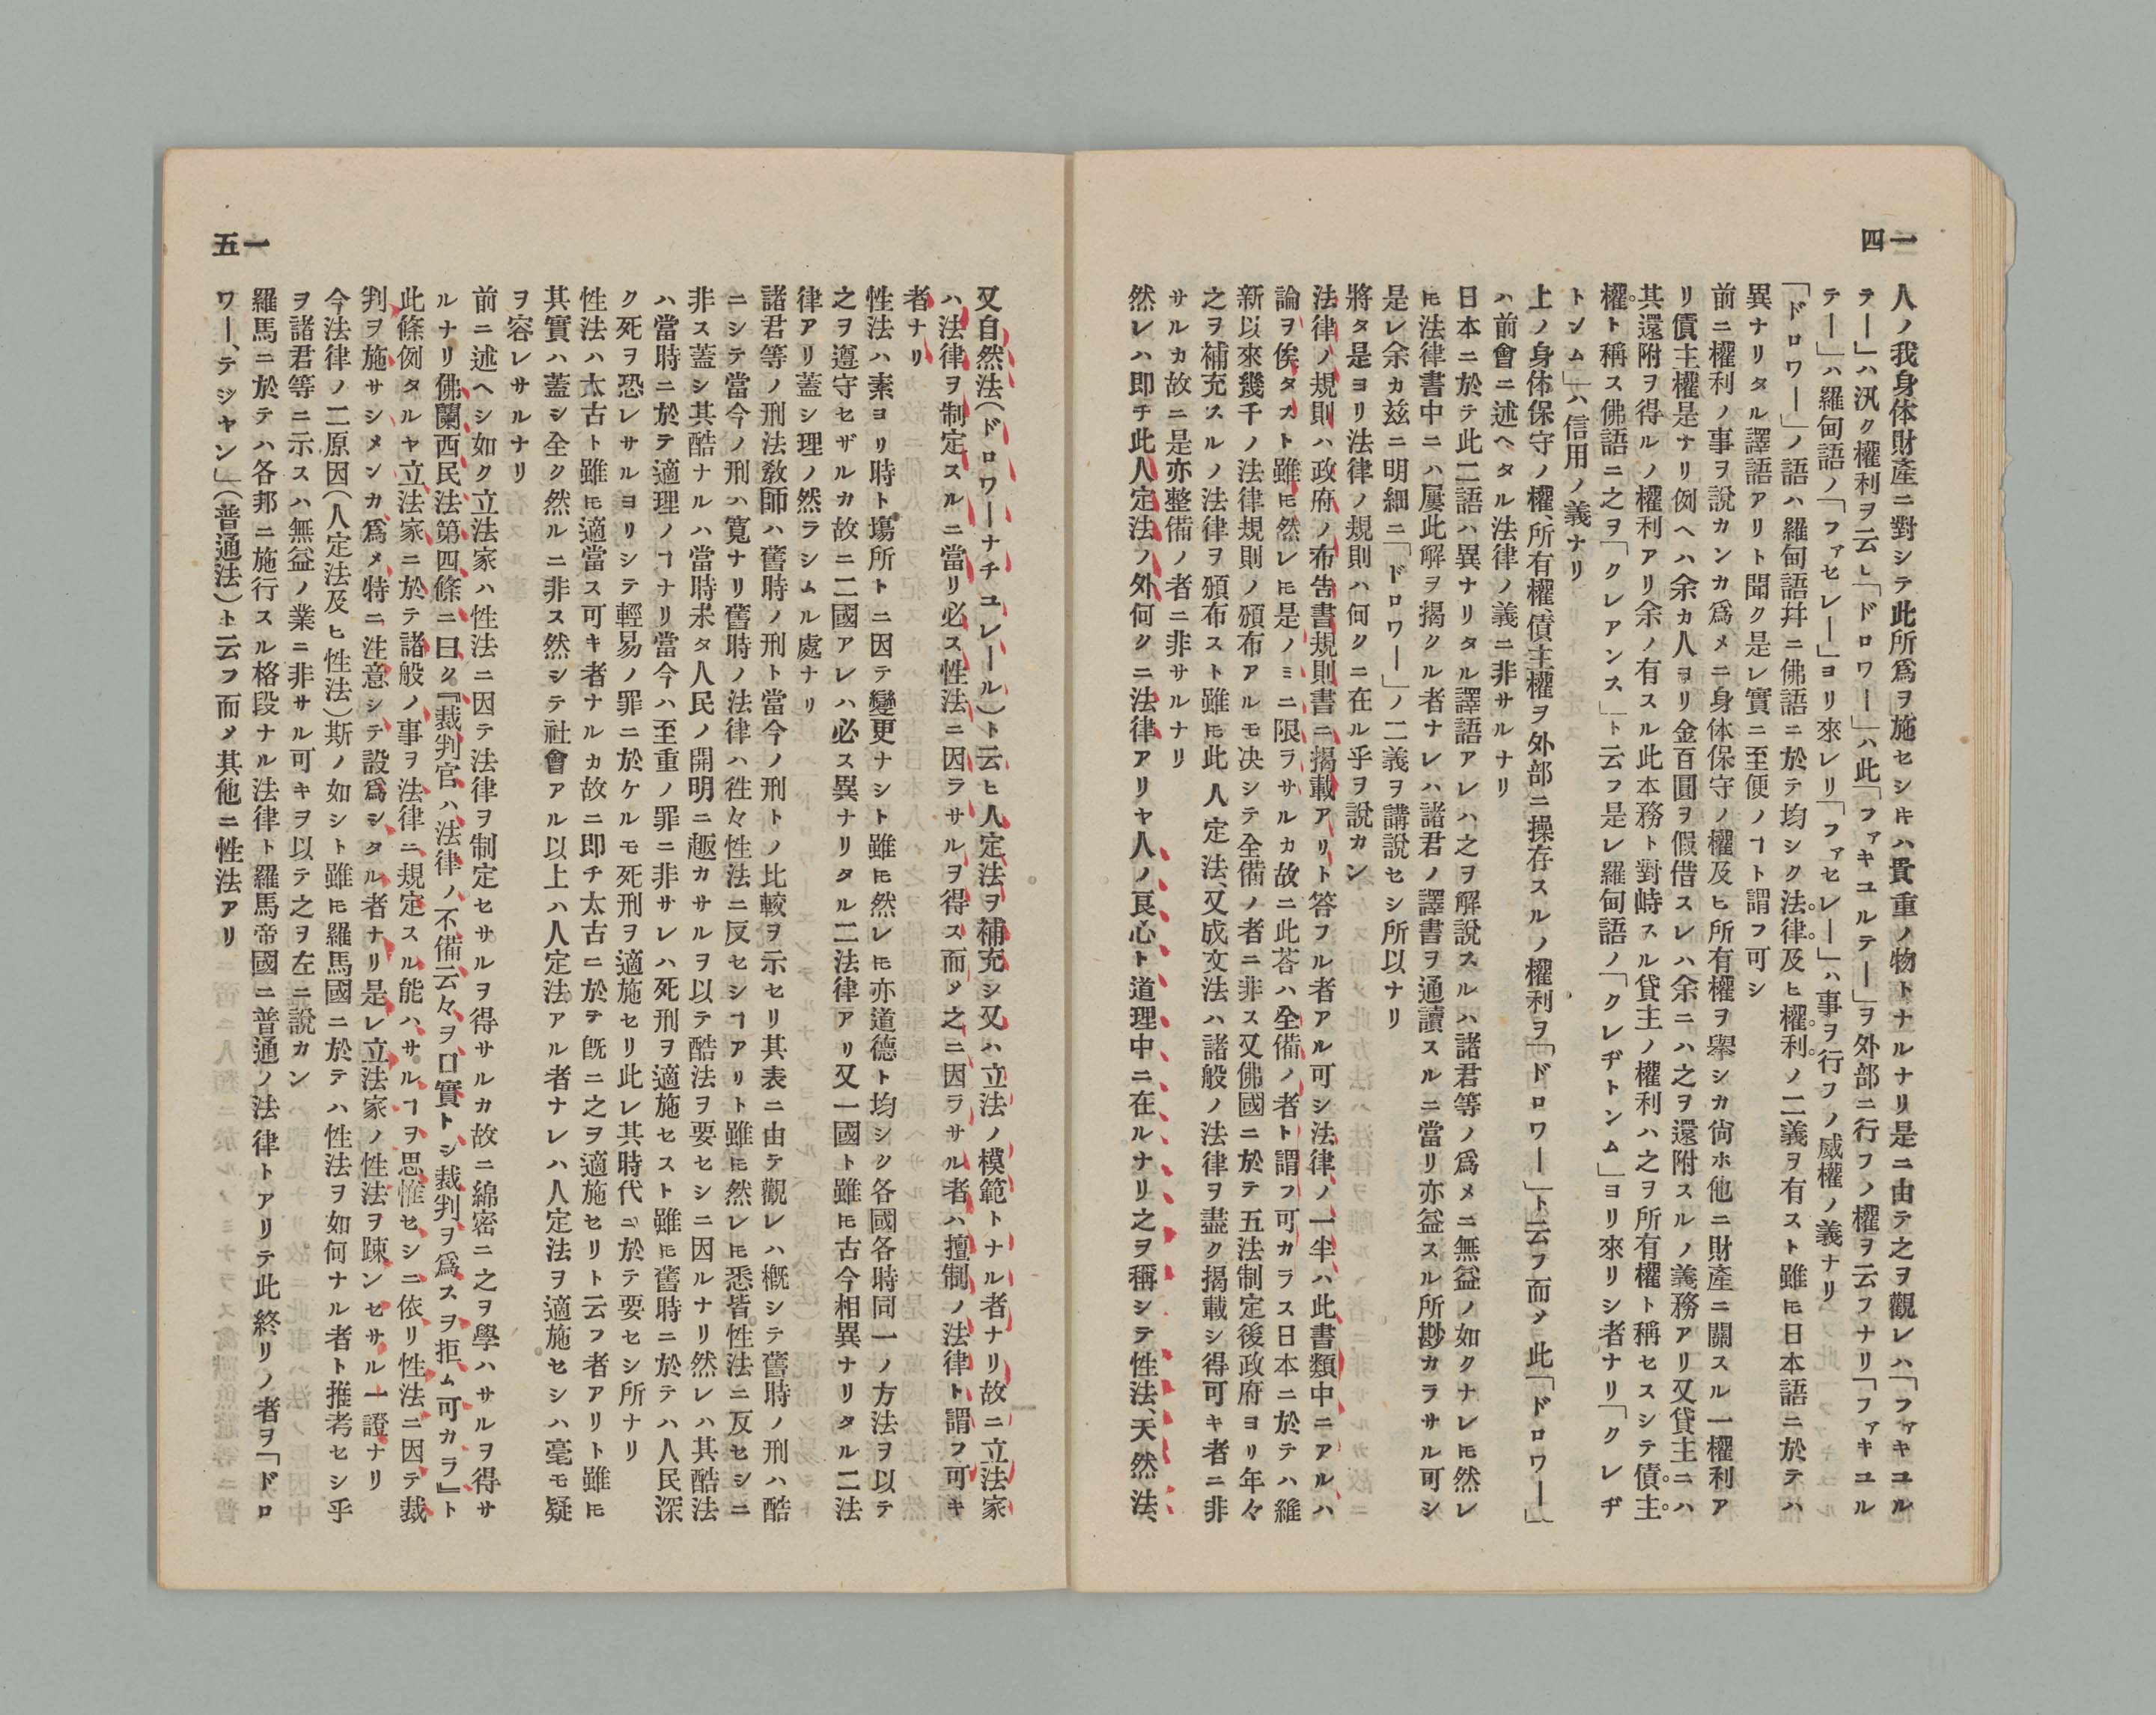 一四
人ノ我身体財產ニ對シテ此所爲ヲ施セシキハ貴重ノ物トナルナリ是ニ由テ之ヲ觀レハ「ファキユル
テー」ハ汎ク權利ヲ云ヒ「ドロワー」ハ此「ファキユルテー」ヲ外部ニ行フノ權ヲ云フナリ「ファキユル
テー」ハ羅甸語ノ「ファセレー」ヨリ來レリ「ファセレー」ハ事ヲ行フノ威權ノ義ナリ
「ドロワー」ノ語ハ羅甸語幷ニ佛語ニ於テ均シク法律及ヒ權利ノ二義ヲ有スト雖𪜈日本語ニ於テハ
異ナリタル譯語アリト聞ク是レ實ニ至便ノヿト謂フ可シ
前ニ權利ノ事ヲ說カンカ爲メニ身体保守ノ權及ヒ所有權ヲ擧シカ尙ホ他ニ財產ニ關スル一權利ア
リ債主權是ナリ例ヘハ余カ人ヨリ金百圓ヲ假借スレハ余ニハ之ヲ還附スルノ義務アリ又貸主ニハ
其還附ヲ得ルノ權利アリ余ノ有スル此本務ト對峙スル貸主ノ權利ハ之ヲ所有權ト稱セスシテ債主
權ト稱ス佛語ニ之ヲ「クレアンス」ト云フ是レ羅甸語ノ「クレヂトンム」ヨリ來リシ者ナリ「クレヂ
トンム」ハ信用ノ義ナリ
上ノ身体保守ノ權、所有權、債主權ヲ外部ニ操存スルノ權利ヲ「ドロワー」ト云フ而〆此「ドロワー」
ハ前會ニ述ヘタル法律ノ義ニ非サルナリ
日本ニ於テ此二語ハ異ナリタル譯語アレハ之ヲ解說スルハ諸君等ノ爲メニ無益ノ如クナレ𪜈然レ
𪜈法律書中ニハ屢此解ヲ揭クル者ナレハ諸君ノ譯書ヲ通讀スルニ當リ亦益スル所尠カラサル可シ
是レ余カ茲ニ明細ニ「ドロワー」ノ二義ヲ講說セシ所以ナリ
將タ是ヨリ法律ノ規則ハ何クニ在ル乎ヲ說カン
法律ノ規則ハ政府ノ布吿書規則書ニ揭載アリト答フル者アル可シ法律ノ一半ハ此書類中ニアルハ
論ヲ俟タスト雖𪜈然レ𪜈是ノミニ限ラサルカ故ニ此荅ハ全備ノ者ト謂フ可カラス日本ニ於テハ維
新以來幾千ノ法律規則ノ頒布アルモ决シテ全備ノ者ニ非ス又佛國ニ於テ五法制定後政府ヨリ年々
之ヲ補充スルノ法律ヲ頒布スト雖𪜈此人定法、又成文法ハ諸般ノ法律ヲ盡ク揭載シ得可キ者ニ非
サルカ故ニ是亦整備ノ者ニ非サルナリ
然レハ即チ此人定法ノ外何クニ法律アリヤ人ノ良心ト道理中ニ在ルナリ之ヲ稱シテ性法、天然法、
又自然法(ドロワーナチユレール)ト云ヒ人定法ヲ補充シ又ハ立法ノ模範トナル者ナリ故ニ立法家
ハ法律ヲ制定スルニ當リ必ス性法ニ因ラサルヲ得ス而〆之ニ因ラサル者ハ擅制ノ法律ト謂フ可キ
者ナリ
性法ハ素ヨリ時ト塲所トニ因テ變更ナシト雖𪜈然レ𪜈亦道德ト均シク各國各時同一ノ方法ヲ以テ
之ヲ遵守セザルカ故ニ二國アレハ必ス異ナリタル二法律アリ又一國ト雖𪜈古今相異ナリタル二法
律アリ蓋シ理ノ然ラシムル處ナリ
諸君等ノ刑法敎師ハ舊時ノ刑ト當今ノ刑トノ比較ヲ示セリ其表ニ由テ觀レハ槪シテ舊時ノ刑ハ酷
ニシテ當今ノ刑ハ寬ナリ舊時ノ法律ハ徃々性法ニ反セシヿアリト雖𪜈然レ𪜈悉皆性法ニ反セシニ
非ス蓋シ其酷ナルハ當時未タ人民ノ開明ニ趣カサルヲ以テ酷法ヲ要セシニ因ルナリ然レハ其酷法
ハ當時ニ於テ適理ノヿナリ當今ハ至重ノ罪ニ非サレハ死刑ヲ適施セスト雖𪜈舊時ニ於テハ人民深
ク死ヲ恐レサルヨリシテ輕易ノ罪ニ於ケルモ死刑ヲ適施セリ此レ其時代ニ於テ要セシ所ナリ
性法ハ太古ト雖𪜈適當ス可キ者ナルカ故ニ即チ太古ニ於テ旣ニ之ヲ適施セリト云フ者アリト雖𪜈
其實ハ蓋シ全ク然ルニ非ス然シテ社會アル以上ハ人定法アル者ナレハ人定法ヲ適施セシハ毫モ疑
ヲ容レサルナリ
前ニ述ヘシ如ク立法家ハ性法ニ因テ法律ヲ制定セサルヲ得サルカ故ニ綿密ニ之ヲ學ハサルヲ得サ
ルナリ佛蘭西民法第四條ニ曰ク『裁判官ハ法律ノ不備云々ヲ口實トシ裁判ヲ爲スヲ拒ム可カラ』ト
此條例タルヤ立法家ニ於テ諸般ノ事ヲ法律ニ規定スル能ハサルヿヲ思惟セシニ依リ性法ニ因テ裁
判ヲ施サシメンカ爲メ特ニ注意シテ設爲シタル者ナリ是レ立法家ノ性法ヲ踈ンセサル一證ナリ
今法律ノ二原因(人定法及ヒ性法)斯ノ如シト雖𪜈羅馬國ニ於テハ性法ヲ如何ナル者ト推考セシ乎
ヲ諸君等ニ示スハ無益ノ業ニ非サル可キヲ以テ之ヲ左ニ說カン
羅馬ニ於テハ各邦ニ施行スル格段ナル法律ト羅馬帝國ニ普通ノ法律トアリテ此終リノ者ヲ「ドロ
ワー、テジャン」(普通法)ト云フ而〆其他ニ性法アリ
一五